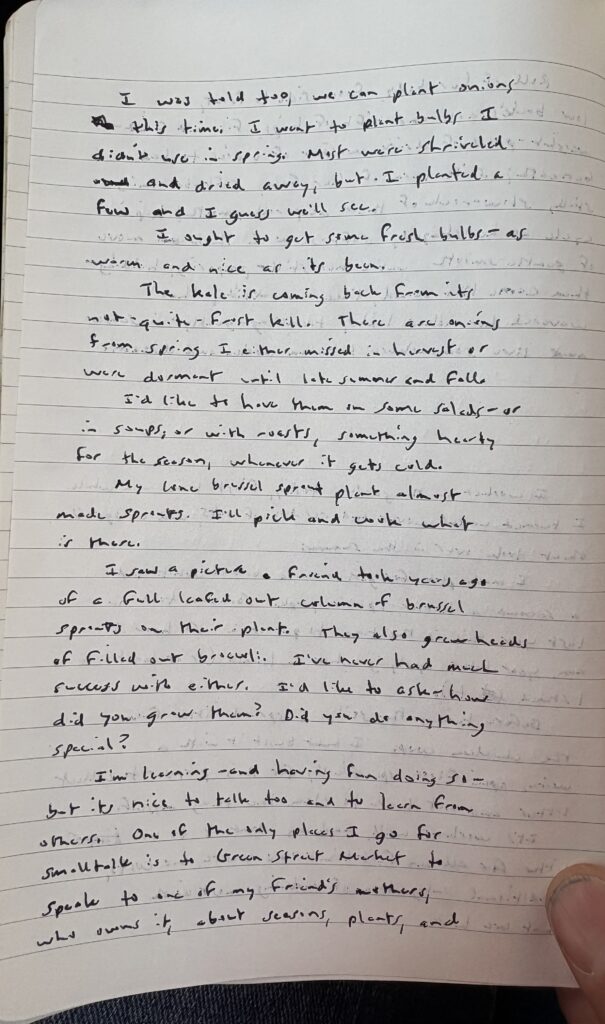 I was told too, we can plant onions
this time. I went to plant bulbs I
didn't use in spring. Most were shriveled
and dried away, but I planted a
few and I guess we'll see.
I ought to get some fresh bulbs - as
warm and nice as its been.
The kale is coming back from its
not-quite-frost kill. There are onions
from spring I either missed in harvest or
were dormant until late summer and fall.
I'd like to have them on some salads - or
in soups, or with roasts, something hearty
for the season, whenever it gets cold.
My lone brussel sprout plant almost
made sprouts. I'll pick and cook what
is there.
I saw a picture a friend took years ago
of a full leafed out column of brussel
sprouts on their plant. They also grew heads
of filled out broccoli. I've never had much
success with either. I'd like to ask - how
did you grow them? Did you do anything
special?
I'm learning - and having fun doing so -
but its nice to talk too and to learn from
others. One of the only places I go for
smalltalk is to Green Street Market to
speak to one of my friend's mothers,
who owns it, about seasons, plants, and